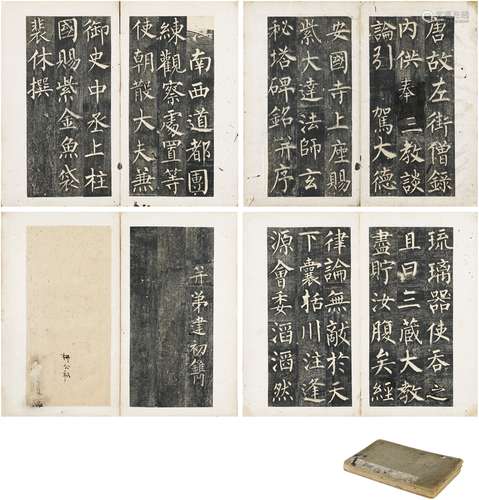 唐故左街僧錄
內供奉三教談
論引駕大德
安國寺上座賜
紫大達法師玄
秘塔碑銘并序
南西道都團
練觀察處置等
使朝散大夫兼
御史中丞上柱
國賜紫金魚袋
裴休撰
琉璃器使吞之
且曰三藏大教
盡貯汝腹矣經
律論無敵於天
下囊括川注逢
源會委滔滔然
并弟建初鐫
柳公